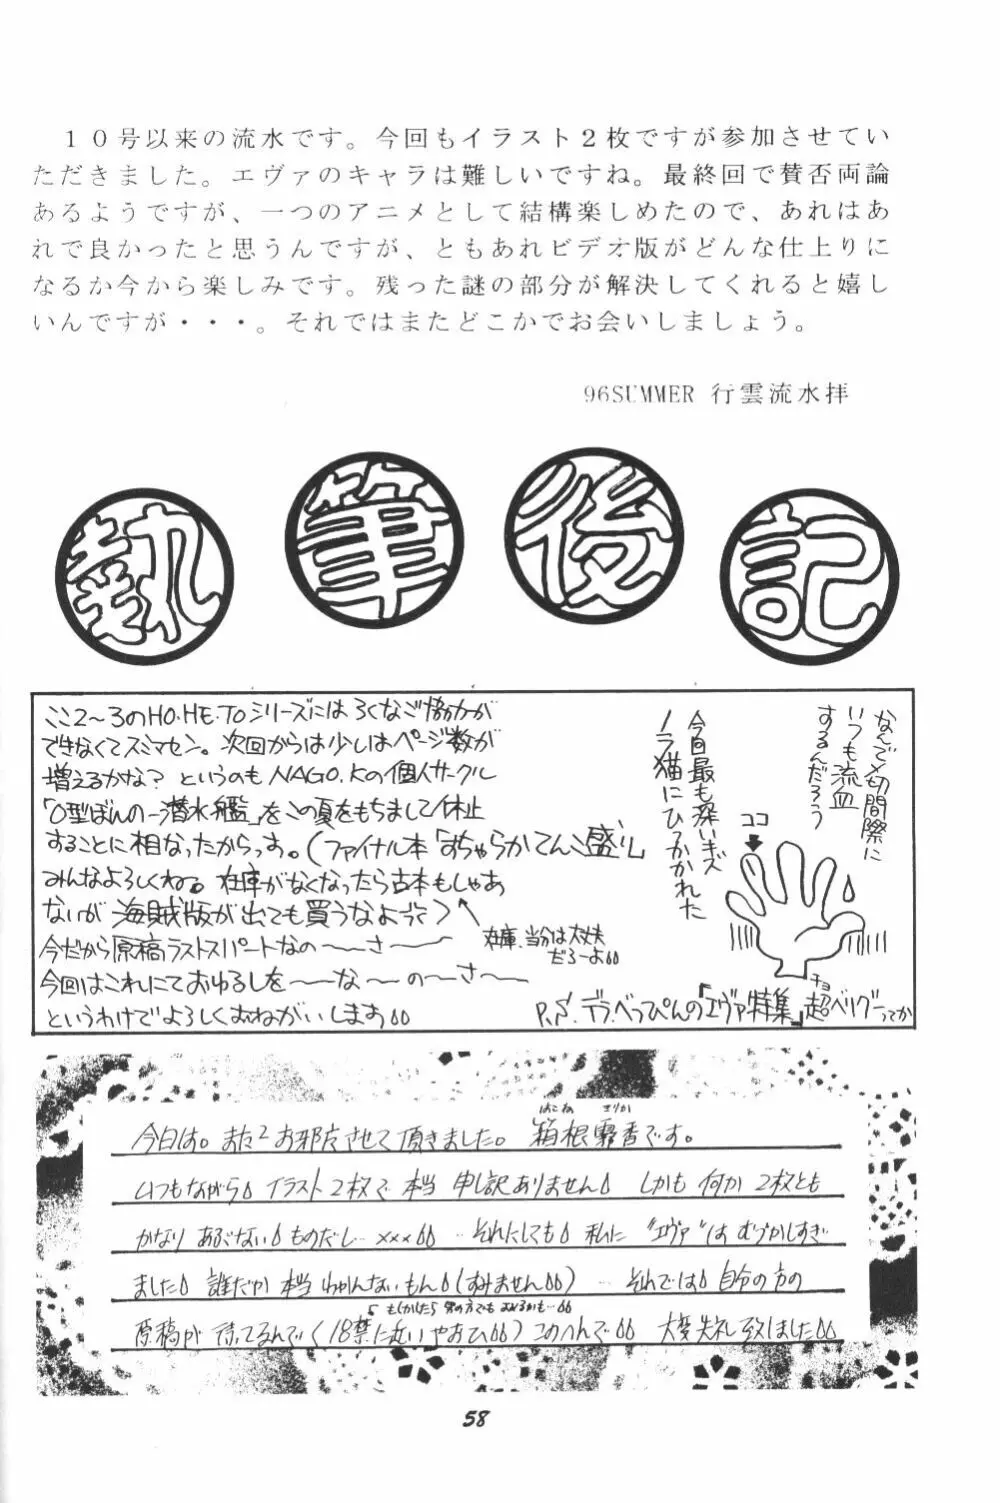 10号以来の流水です。今回もイラスト2枚ですが参加させてい
ただきました。エヴァのキャラは難しいですね。最終回で賛否両論
あるようですが、一つのアニメとして結構楽しめたので、あれはあ
れで良かったと思うんですが、ともあれビデオ版がどんな仕上りに
なるか今から楽しみです。残った謎の部分が解決してくれると嬉し
いんですが・・・。それではまたどこかでお会いしましょう。
96SUMMER 行雲流水拝
執筆後記
ここ2〜3のHO・HE・TOシリーズにはろくなご協力が
できなくてスミマセン。次回からは少しはページ数が
増えるかな? というのもNAGO.Kの個人サークル
「O型ぼんの一潜水艦」をこの夏をもちまして休止
することに相なったからっす。(ファイナル本「おちゃらかてんこ盛り」
みんなよろしくね。在庫がなくなったら古本もしゃあ
ないが海賊版が出ても買うなよ〜)
在庫、当分は大丈夫
だろーよ
今だから原稿ラストスパートなの〜〜さ〜〜
今回はこれにておゆるしを〜〜な〜の〜さ〜〜
というわけでよろしくおねがいします
なんで〆切間際に
いつも流血
するんだろう
今回最も深いキズ
ノラ猫にひっかかれた
ココ
P.S. デラべっぴんの「エヴァ特集」超ベリグーってか
チョ
はこね
今日は。またまたお邪魔させて頂きました。箱根霧香です。
いつもながらイラスト2枚で本当申し訳ありません しかも何か2枚とも
かなりあぶないものだし…×××  …それにしても 私に"エヴァ"はむづかしすぎ
ました 誰だか本当わかんないもん(すみません) …それでは 自分の方の
もしかしたら男の方でもおこるかも…
原稿が待ってるんで(18禁に近いやおひ)このへんで 大変失礼致しました
58